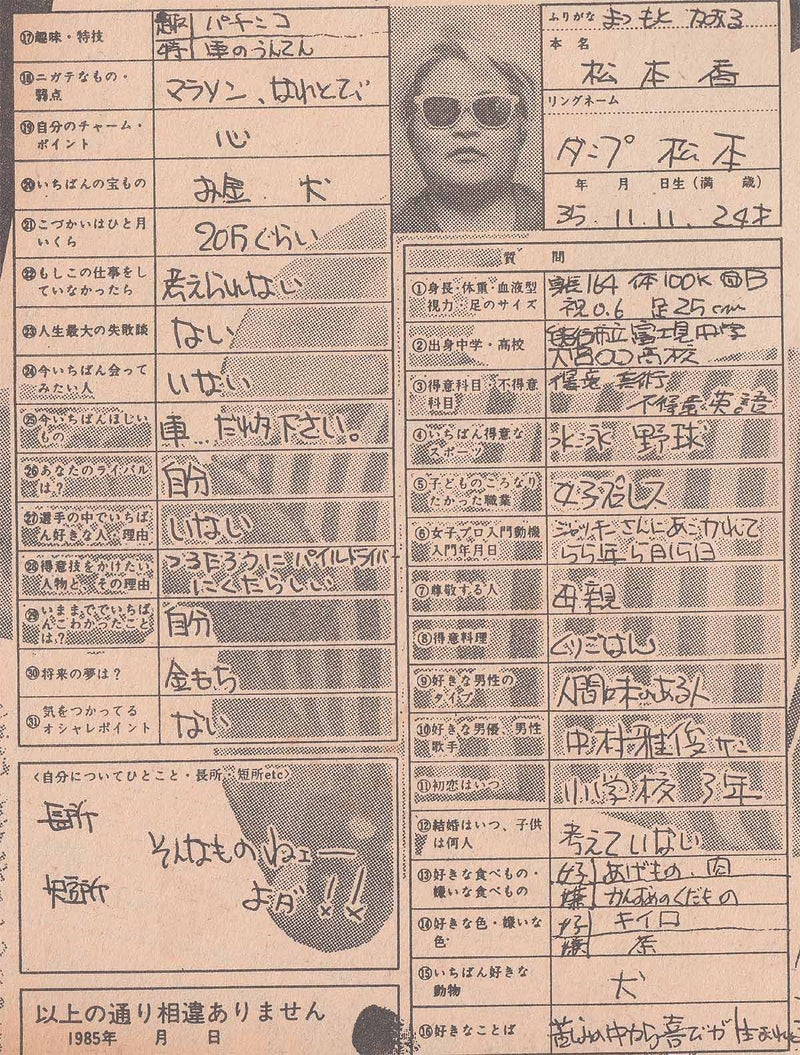 ふりがな まつもと かおる
本名
松本香
リングネーム
ダンプ松本
年 月 日生(満 歳)
35. 11. 11. 24才
質問
①身長・体重・血液型
視力・足のサイズ
身長164 体100K 血B
視0.6 足25cm
②出身中学・高校
熊谷市立富士見中学
大宮開成高校
③得意科目・不得意
科目
得意 美術
不得意 英語
④いちばん得意な
スポーツ
水泳 野球
⑤子どものころなり
たかった職業
女子プロレス
⑥女子プロ入門動機
入門年月日
ジャッキーさんにあこがれて
55年5月15日
⑦尊敬する人
母親
⑧得意料理
くりごはん
⑨好きな男性の
タイプ
人間味のある人
⑩好きな男優、男性
歌手
中村雅俊
⑪初恋はいつ
小学校 3年
⑫結婚はいつ、子供
は何人
考えていない
⑬好きな食べもの・
嫌いな食べもの
好 あげもの・肉
嫌 かんずめのくだもの
⑭好きな色・嫌いな
色
好 キイロ
嫌 茶
⑮いちばん好きな
動物
犬
⑯好きなことば
苦しみの中から喜びが生まれる
⑰趣味・特技
趣 パチンコ
特 車のうんてん
⑱ニガテなもの・
弱点
マラソン、
⑲自分のチャーム・
ポイント
心
⑳いちばんの宝もの
お金 犬
㉑こづかいはひと月
いくら
20万ぐらい
㉒もしこの仕事をし
ていなかったら
考えられない
㉓人生最大の失敗談
ない
㉔今いちばん会って
みたい人
いない
㉕今いちばんほしい
もの
車…だれか下さい。
㉖あなたのライバル
は?
自分
㉗選手の中でいちば
ん好きな人・理由
いない
㉘得意技をかけたい
人物と、その理由
つるたろうにパイルドライバー
にくたらしい
㉙いままででいちば
んこわかったこと
は?
自分
㉚将来の夢は?
金もち
㉛気をつかってる
オシャレポイント
ない
〈自分についてひとこと・長所・短所etc〉
長所
短所
そんなものねェー
よダ!!
以上の通り相違ありません
1985年 月 日